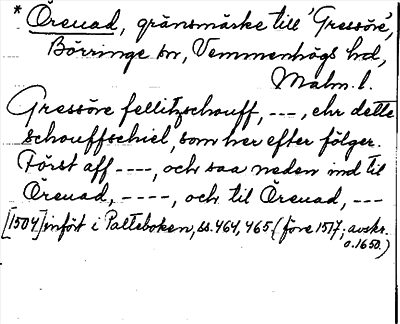 * Örenad, gränsmärke till 'Gressöre',
Börringe sn, Vemmenhögs hd,
Malm. l.
Gressöre fellitzschouff, ---, ehr dette
schouffschiel, som her efter fölger.
Först aff ----, och saa neden ind til
Örenad, ----, och til Örenad, ---
[1504] infört i Palteboken, ss. 464, 465 (före 1517; avskr.
o. 1650.)